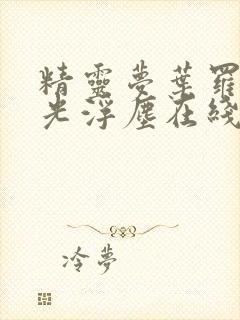 精靈夢葉羅
光浮塵在綫
冷夢